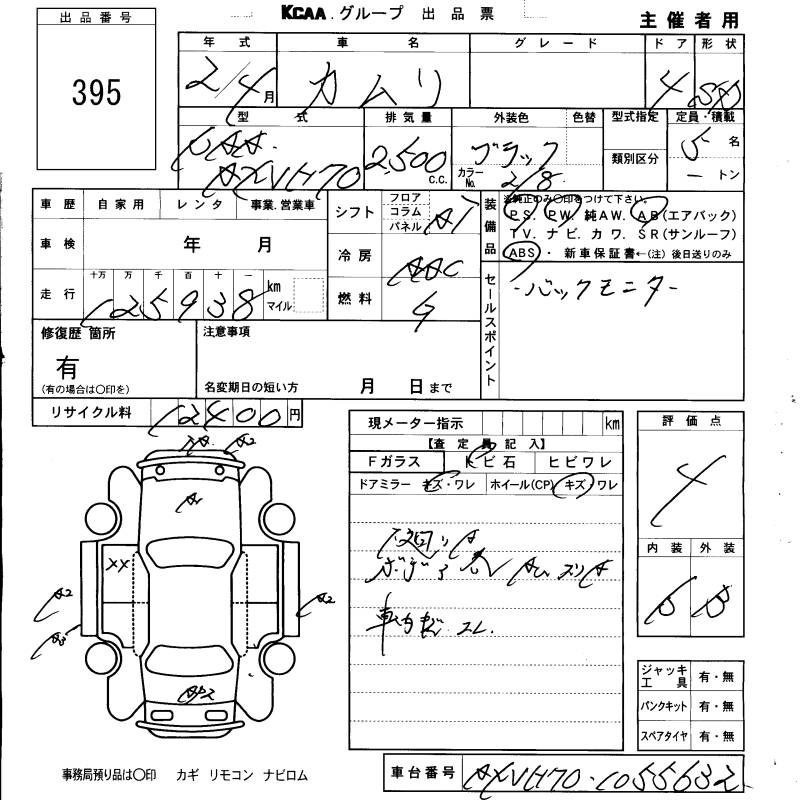 KCAA.グループ 出品票
主催者用
出品番号
395
年式 車名 グレード ドア 形状
2/4月 カムリ 4 SD
型式 排気量 外装色 色替 型式指定 定員・積載
6AA. AXVH70 2,500 c.c. ブラック 類別区分 5名
カラーNo. 218 ートン
車歴 自家用 レンタ 事業.営業車
シフト フロア コラム パネル AT
装備品 ※純正のみ○印をつけて下さい。
P.S. P.W. 純A.W. A.B(エアバック)
T.V. ナビ. カワ. S.R(サンルーフ)
ABS ・ 新車保証書←(注)後日送りのみ
車検 年 月
冷房 AAC
走行 十万 万 千 百 十 一
125938 km マイル
燃料 G
セールスポイント
・バックモニター
修復歴 箇所
有
(有の場合は○印を)
注意事項
名変期日の短い方 月 日まで
リサイクル料 12400円
現メーター指示 km
【査定員記入】
Fガラス トビ石 ヒビワレ
ドアミラー キズ・ワレ ホイール(CP) キズ・ワレ
評価点
4
内装 外装
B B
A2
A
XX
A2
A2
ジャッキ工具 有・無
パンクキット 有・無
スペアタイヤ 有・無
事務局預り品は○印 カギ リモコン ナビロム
車台番号 AXVH70-1055632